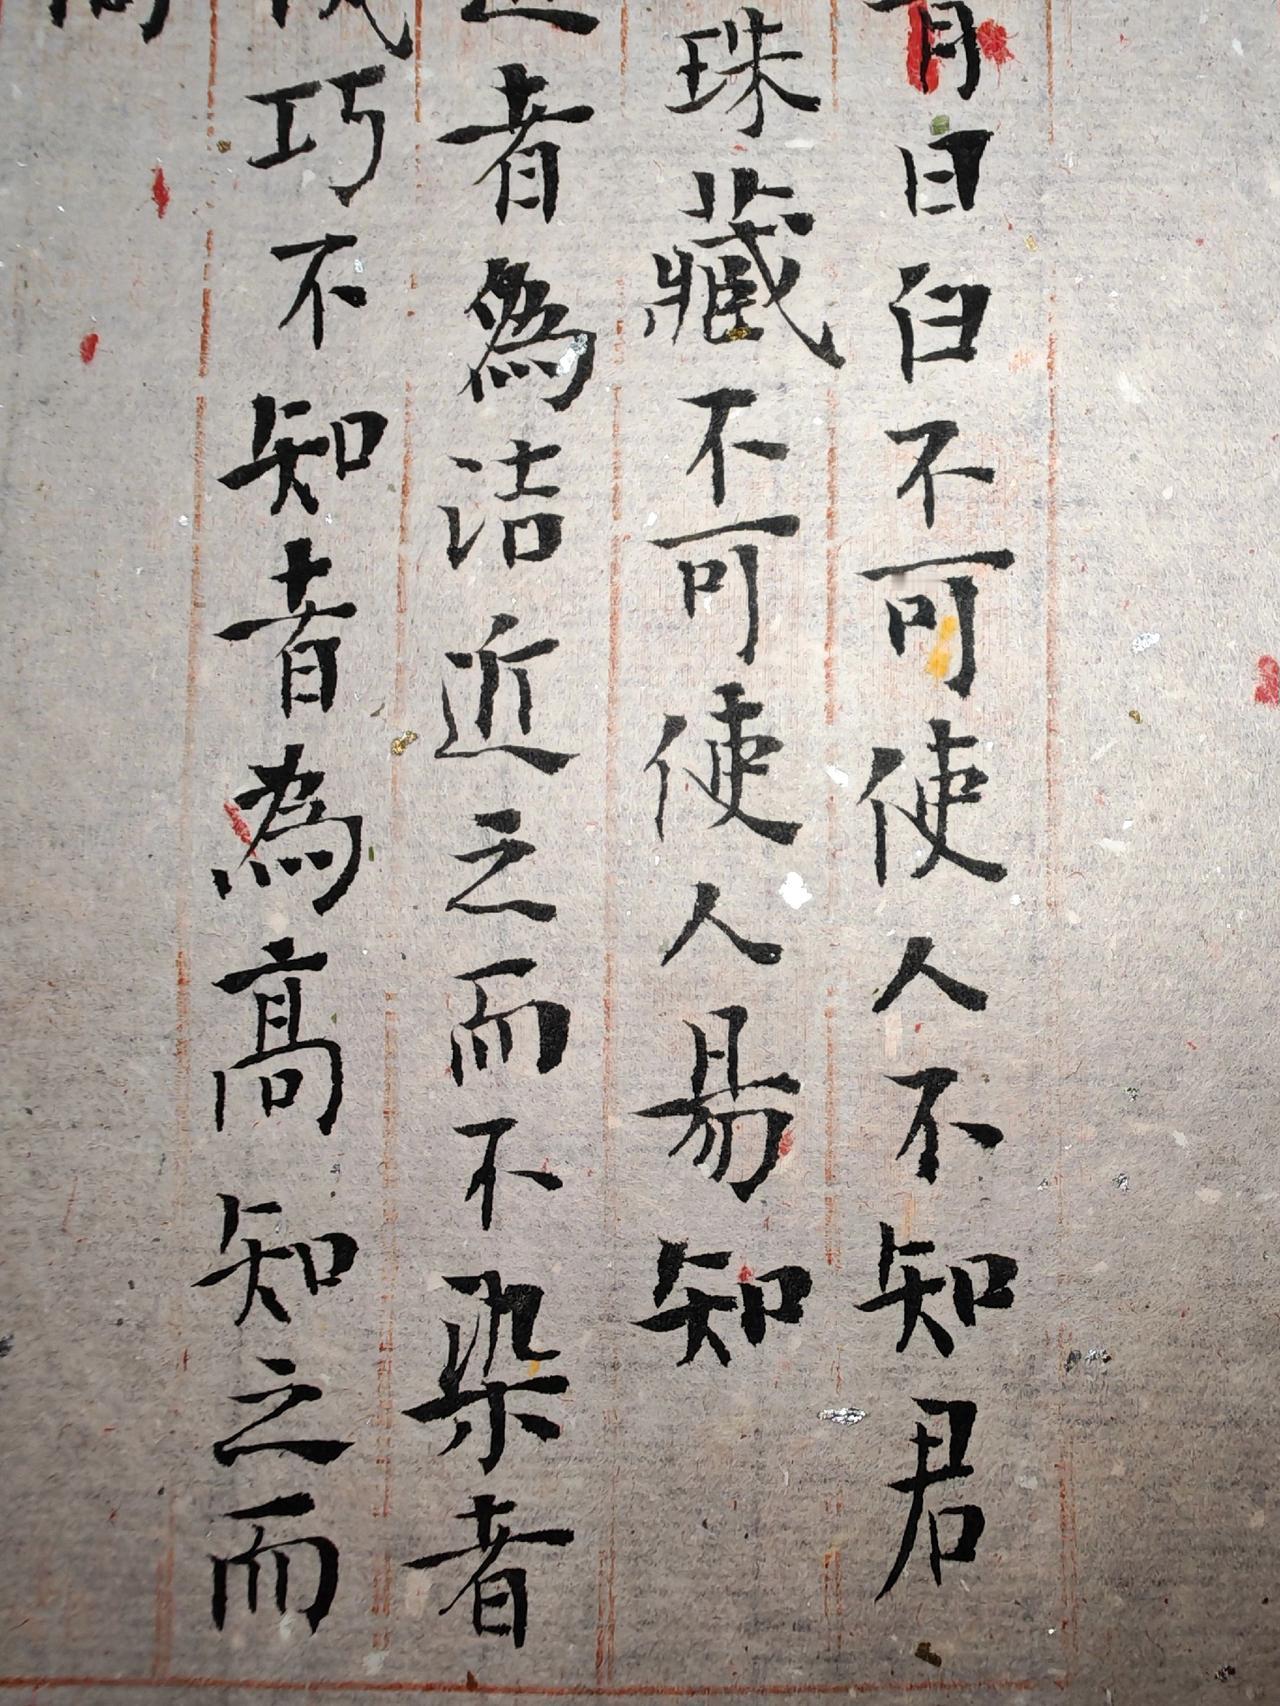 青日白不可使人不知君
珠藏不可使人易知
近者為洁近之而不染者
巧不知者為高知之而